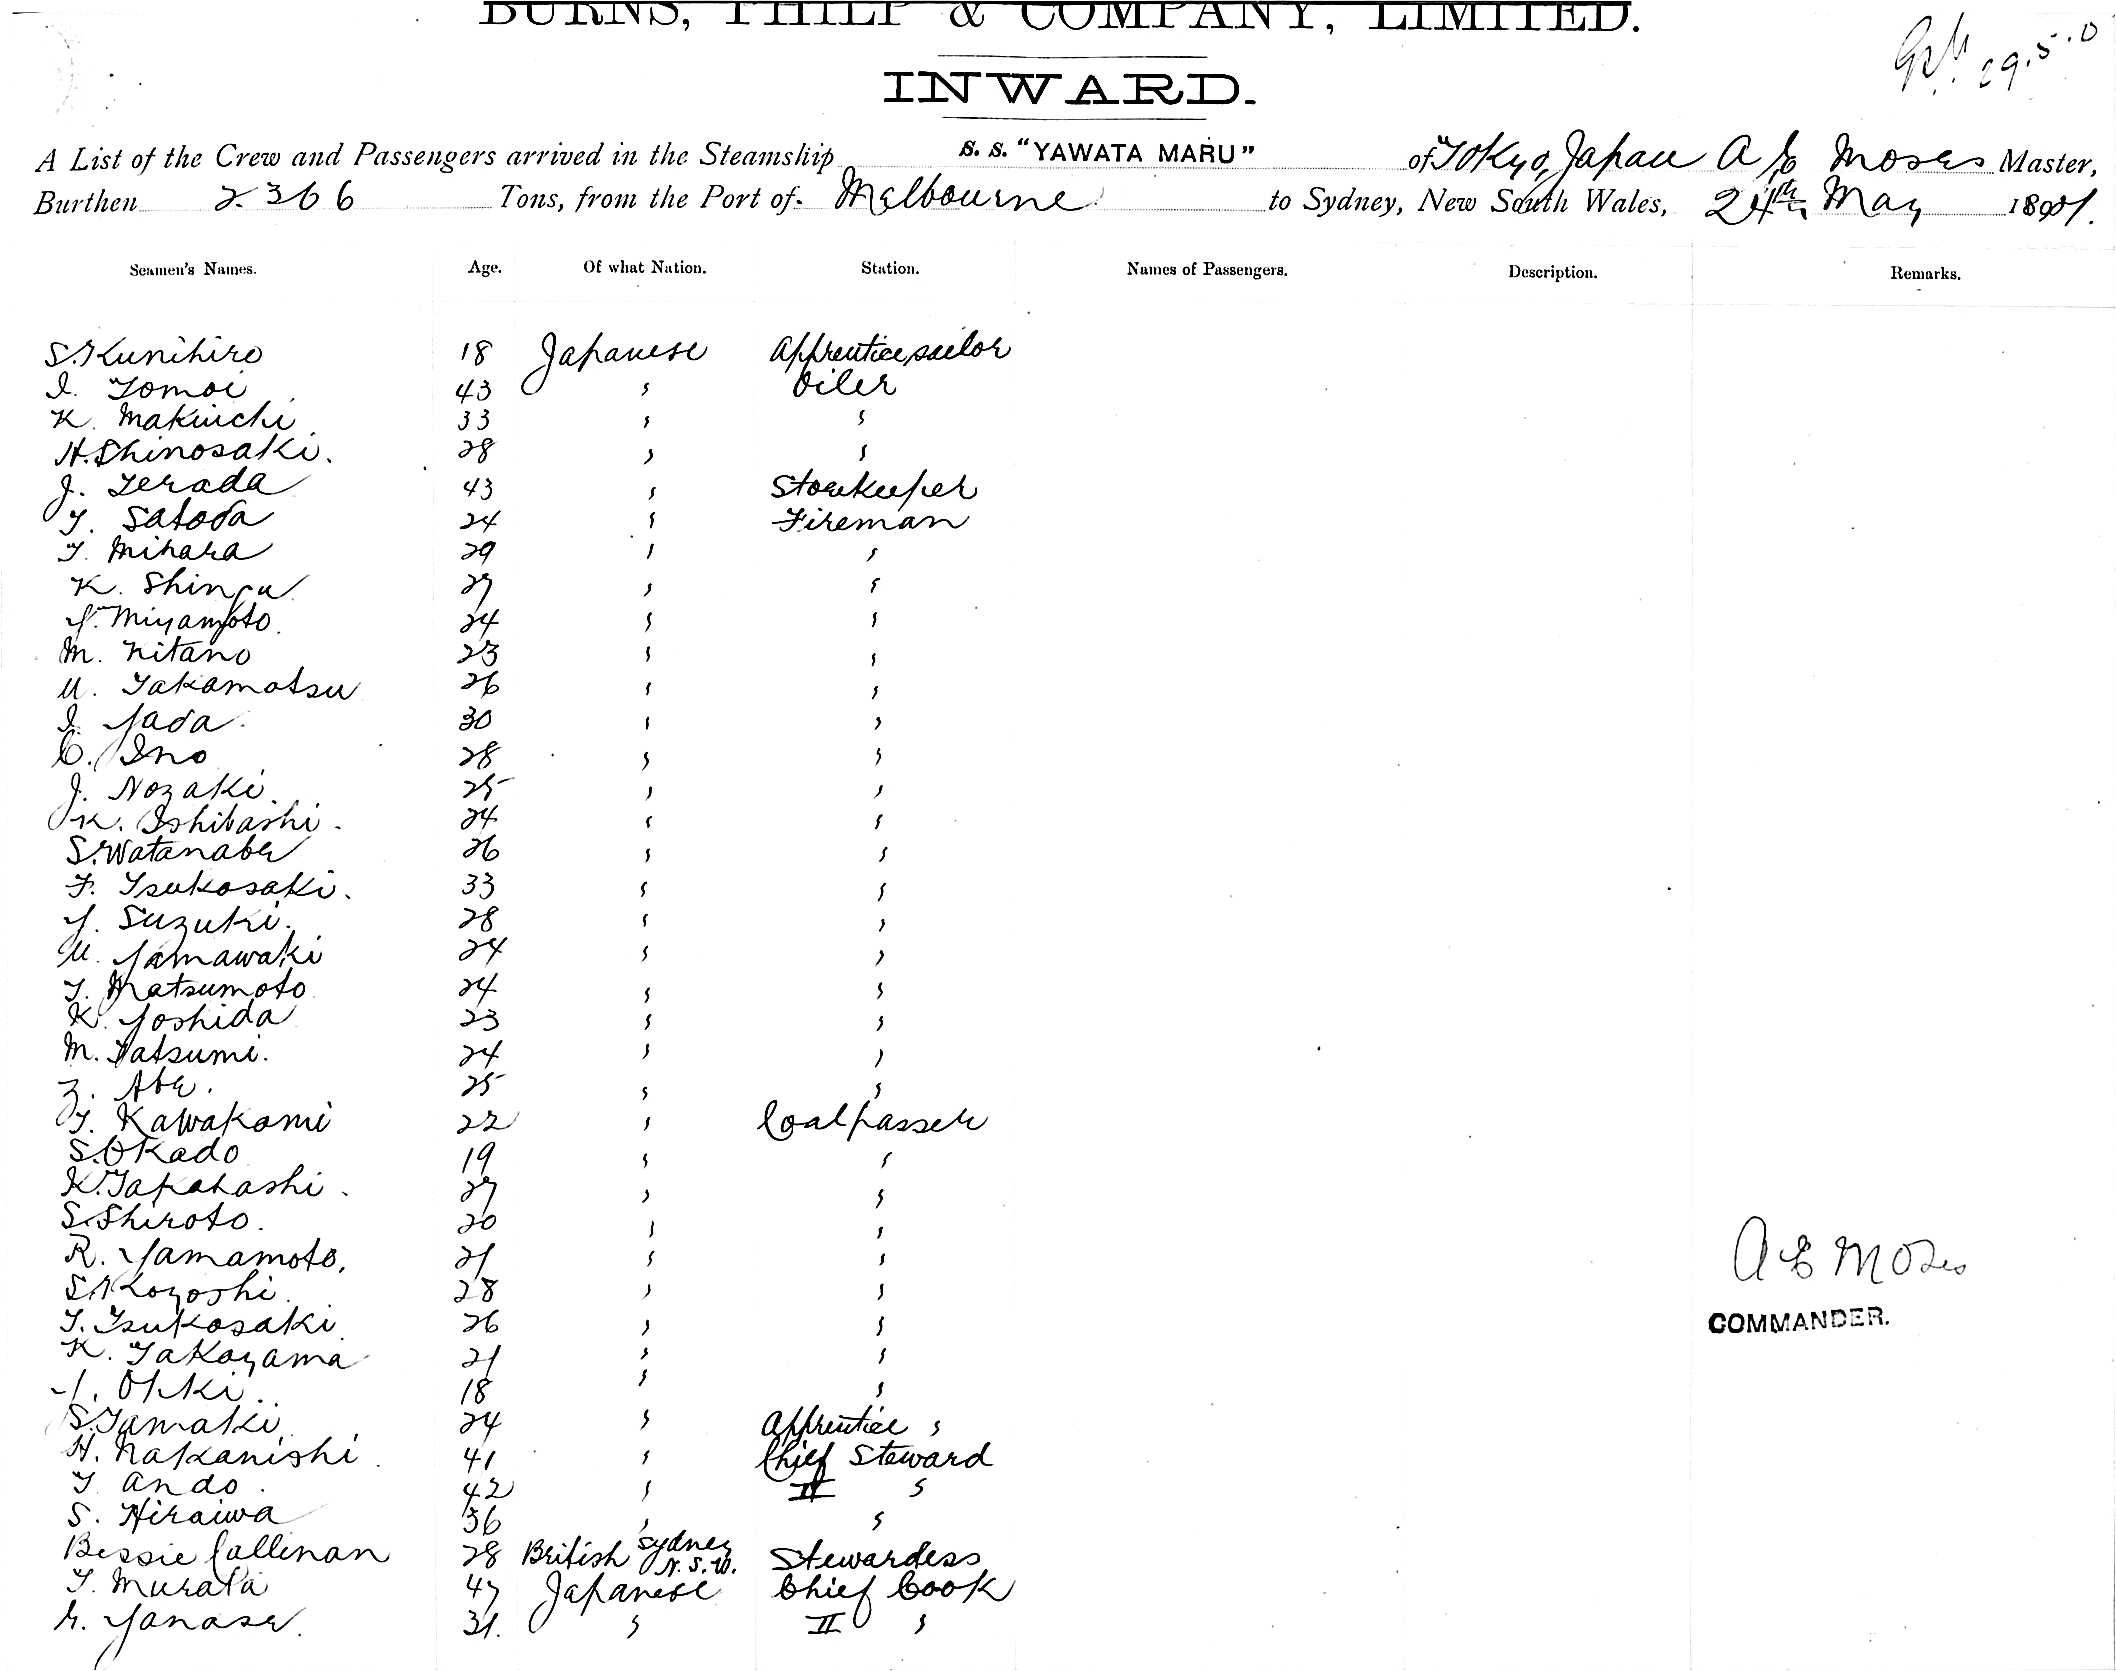 BURNS, PHILP & COMPANY, LIMITED.
29.5.0
INWARD.
A List of the Crew and Passengers arrived in the Steamship S. S. "YAWATA MARU" of Tokyo, Japan A E Moses Master,
Burthen 2366 Tons, from the Port of Melbourne to Sydney, New South Wales, 24th May 1901.
Seamen's Names. Age. Of what Nation. Station. Names of Passengers. Description. Remarks.
S. Kunihiro 18 Japanese Apprentice sailor
I. Tomoi 43 " Oiler
K. Makiuchi 33 " "
H. Shinosaki. 28 " "
J. Terada 43 " Storekeeper
T. Satoda 24 " Fireman
T. Mihara 29 " "
K. Shingu 27 " "
Y. Miyamoto. 24 " "
M. Nitano 23 " "
U. Takamatsu 26 " "
I. Yada. 30 " "
C. Ino 28 " "
J. Nozaki. 25 " "
K. Ishibashi. 24 " "
S. Watanabe 26 " "
F. Tsukosaki. 33 " "
Y. Suzuki. 28 " "
U. Yamawaki 24 " "
T. Matsumoto 24 " "
K. Yoshida 23 " "
M. Tatsumi. 24 " "
Z. Abe. 25 " "
T. Kawakami 22 " Coalpasser
S. Okado 19 " "
K. Takahashi. 27 " "
S. Shiroto. 20 " "
R. Yamamoto. 21 " "
S. Koyoshi. 28 " "
T. Tsukosaki 26 " "
K. Takayama 21 " "
Y. Oki. 18 " "
S. Tamaki 24 " Apprentice "
H. Nakanishi. 41 " Chief Steward
T. Ando. 42 " II "
S. Hiraiwa 36 " "
Bessie Callinan 28 British Sydney N.S.W. Stewardess
T. Murata 47 Japanese Chief Cook
Yanase. 31. " II "
A E Moses
COMMANDER.